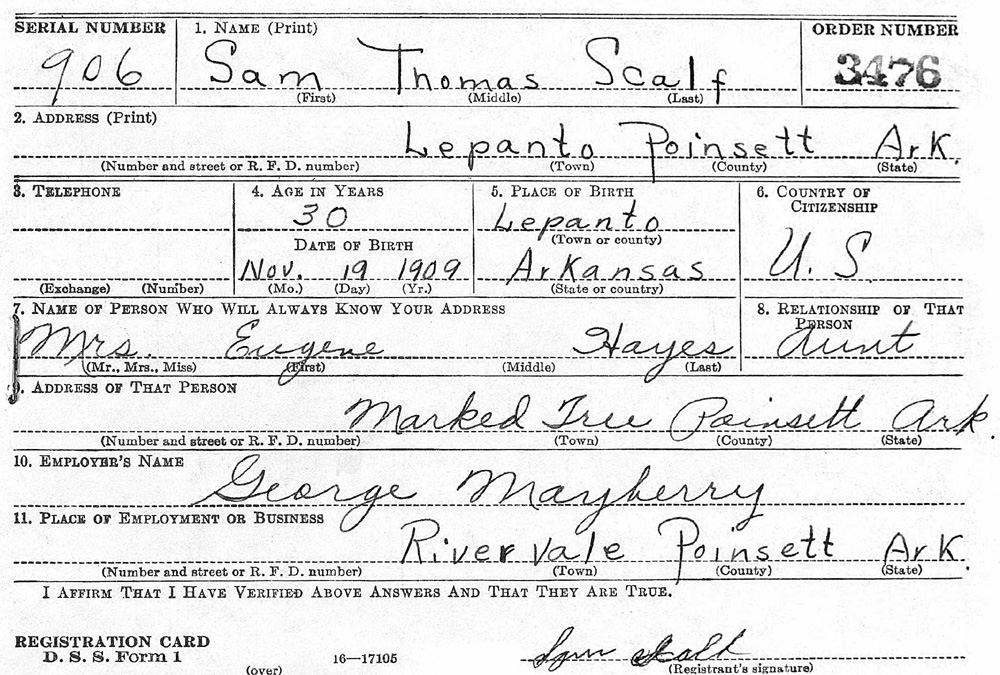 SERIAL NUMBER 1. NAME (Print) ORDER NUMBER
906 Sam Thomas Scalf 3476
(First) (Middle) (Last)
2. ADDRESS (Print)
Lepanto Poinsett Ark.
(Number and street or R. F. D. number) (Town) (County) (State)
3. TELEPHONE 4. AGE IN YEARS 5. PLACE OF BIRTH 6. COUNTRY OF CITIZENSHIP
30 Lepanto
(Town or county)
DATE OF BIRTH U. S
Nov. 19 1909 Arkansas
(Exchange) (Number) (Mo.) (Day) (Yr.) (State or country)
7. NAME OF PERSON WHO WILL ALWAYS KNOW YOUR ADDRESS 8. RELATIONSHIP OF THAT PERSON
Mrs. Eugene Hayes Aunt
(Mr., Mrs., Miss) (First) (Middle) (Last)
9. ADDRESS OF THAT PERSON
Marked Tree Poinsett Ark.
(Number and street or R. F. D. number) (Town) (County) (State)
10. EMPLOYER'S NAME
George Mayberry
11. PLACE OF EMPLOYMENT OR BUSINESS
Rivervale Poinsett Ark
(Number and street or R. F. D. number) (Town) (County) (State)
I AFFIRM THAT I HAVE VERIFIED ABOVE ANSWERS AND THAT THEY ARE TRUE.
REGISTRATION CARD
D. S. S. Form 1 (over) 16—17105 Sam Scalf
(Registrant's signature)